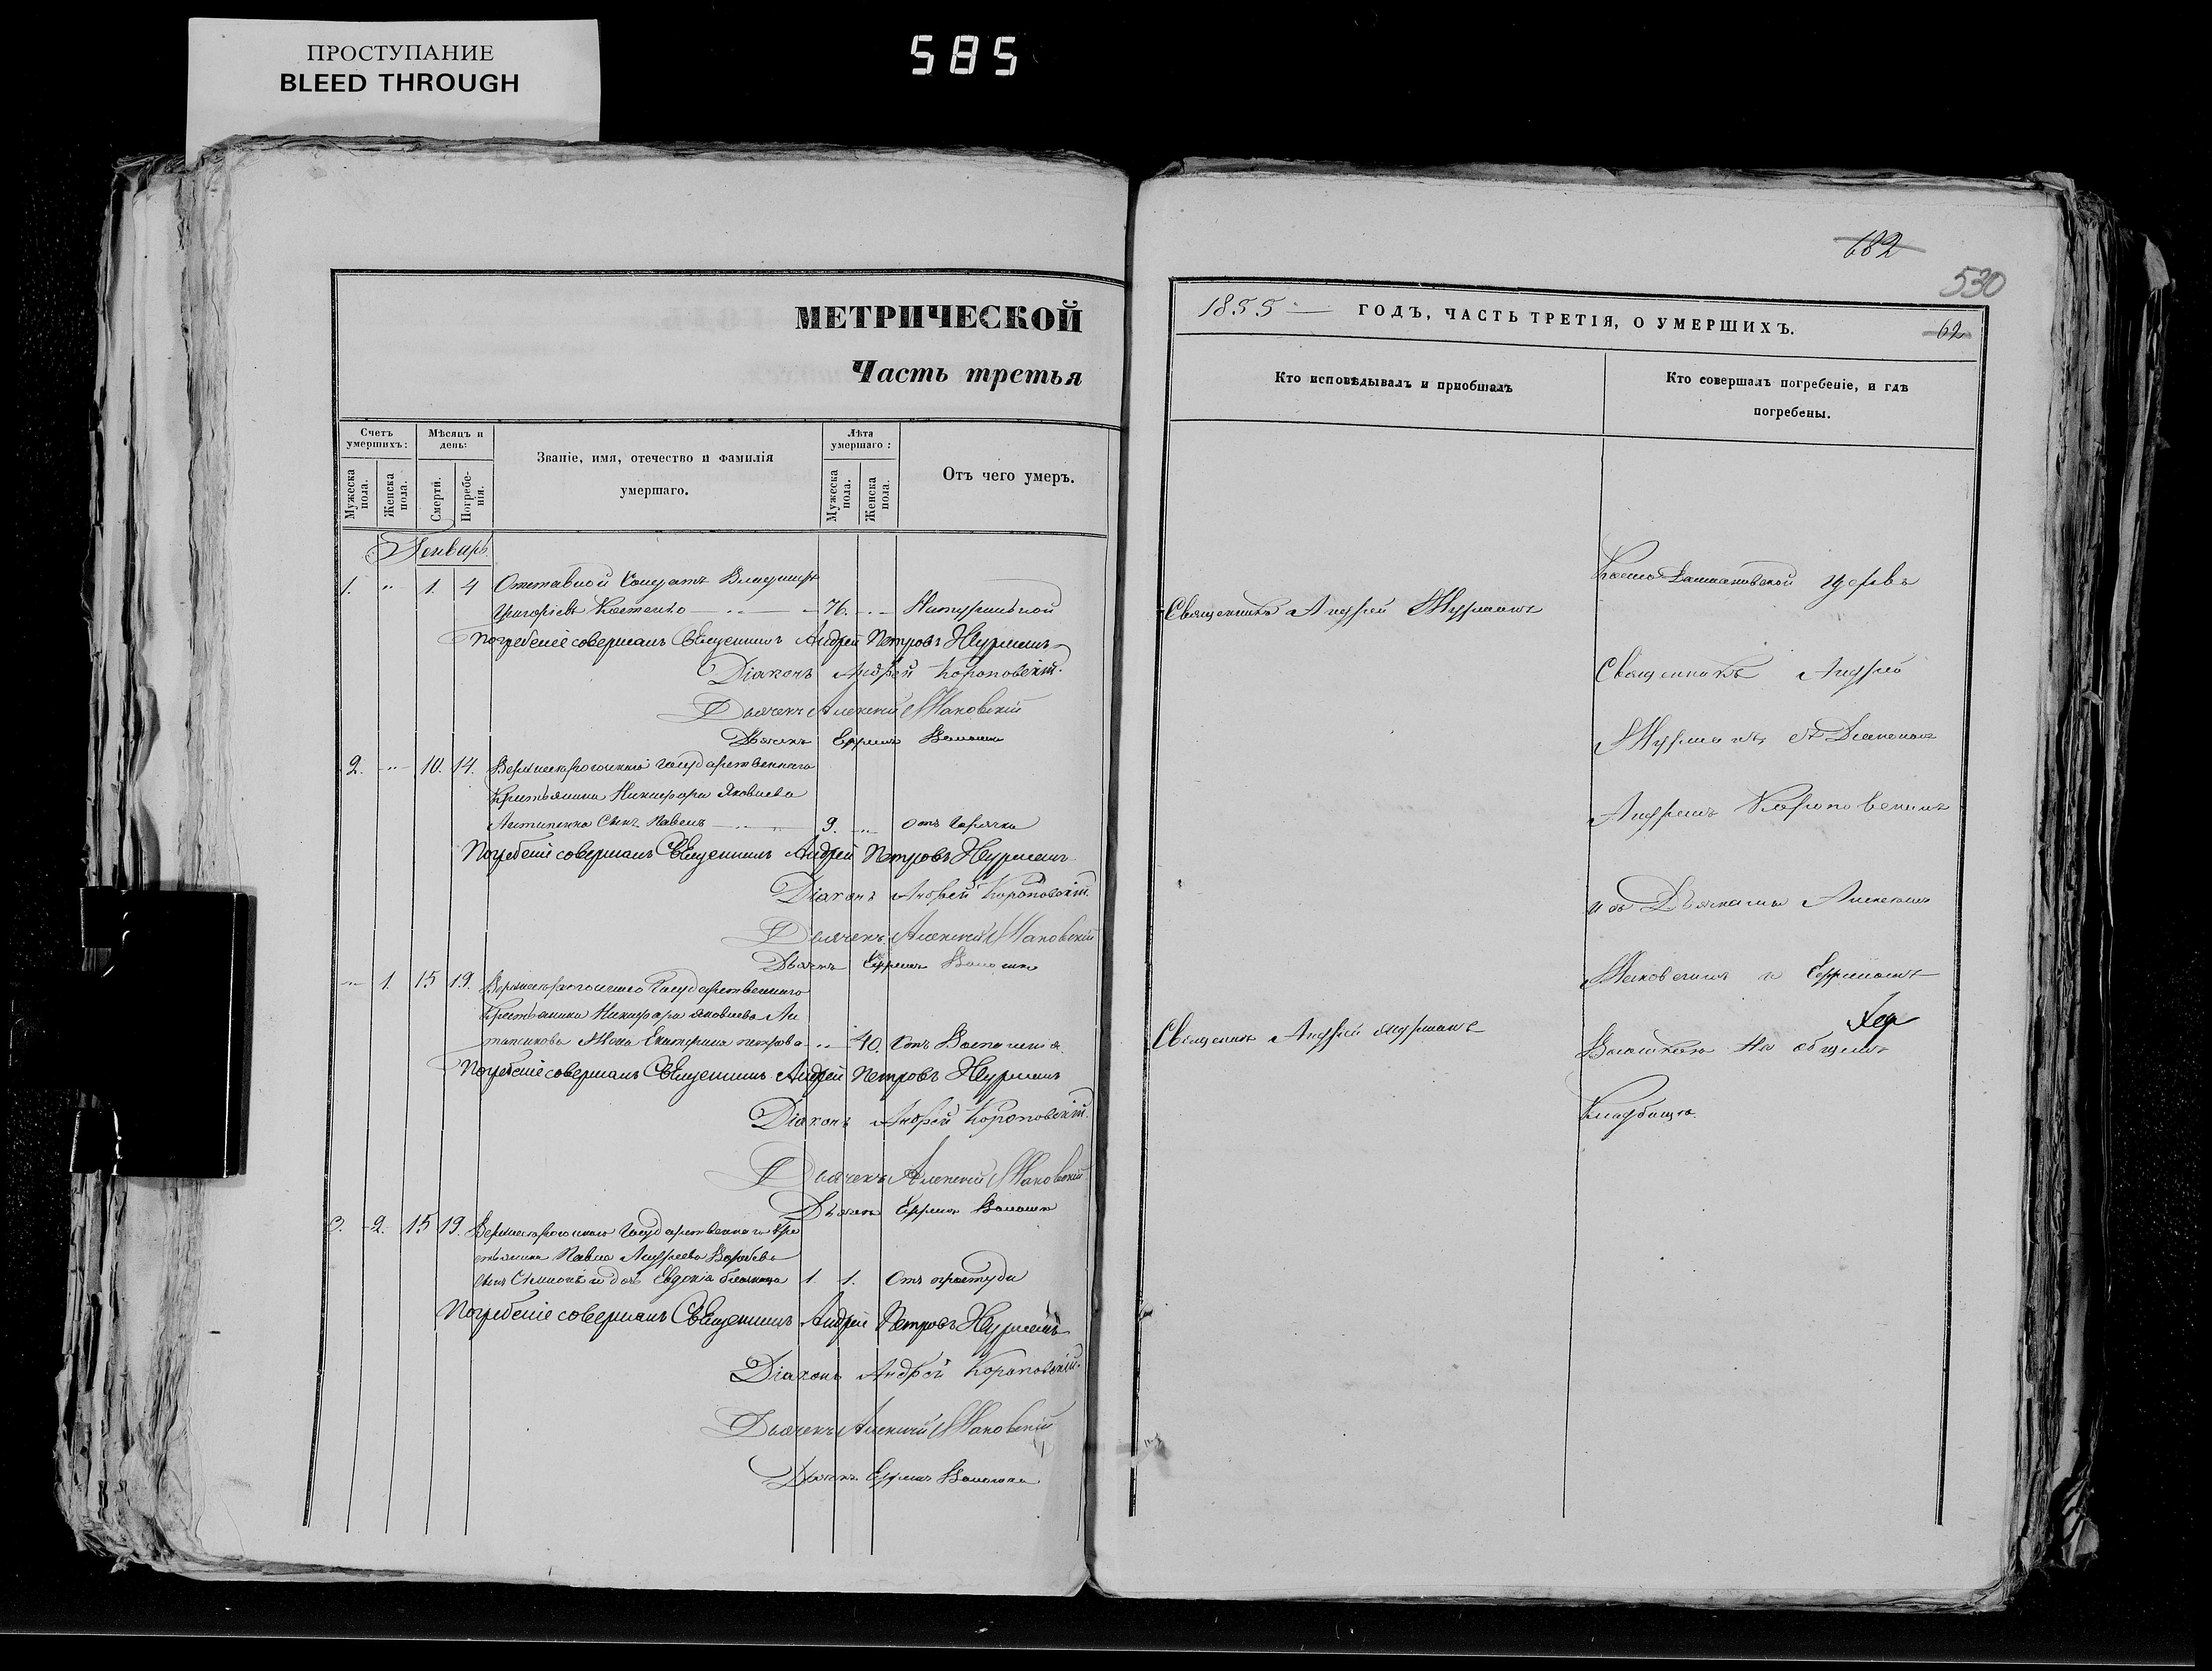 ПРОСТУПАНИЕ
BLEED THROUGH
585
МЕТРИЧЕСКОЙ
Часть третья
Счетъ умершихъ:
Мѣсяцъ и день:
Званіе, имя, отечество и фамилія умершаго.
Лѣта умершаго:
Отъ чего умеръ.
Мужеска пола.
Женска пола.
Смерти.
Погребенія.
Мужеска пола.
Женска пола.
Январь.
1. " 1. 4 Отставной Солдатъ Владимиръ
Григорьевъ Костенко 76. Натуральной
Погребеніе совершалъ Священникъ Андрей Петровъ Журманъ
Діаконъ Андрей Короповскій.
Дьячекъ Алексій Маковскій
Дьячекъ Ефремъ Волошко
2. " 10. 14. Государственнаго
Крестьянина Никифора Яковлева
Антипенка Сынъ Павелъ 9. " отъ горячки
Погребеніе совершалъ Священникъ Андрей Петровъ Журманъ
Діаконъ Андрей Короповскій.
Дьячекъ Алексій Маковскій
Дьячекъ Ефремъ Волошко
" 1. 15 19. Государственнаго
Крестьянина Никифора Яковлева Ан
Жена Екатерина Петрова " 40. Отъ Воспаленія
Погребеніе совершалъ Священникъ Андрей Петровъ Журманъ
Діаконъ Андрей Короповскій.
Дьячекъ Алексій Маковскій
Дьячекъ Ефремъ Волошко
3. 2. 15 19. Государственнаго Кре
стьянина Павла Андреева
Сынъ Симеонъ и дочь Евдокія близнецы 1. 1. Отъ простуды
Погребеніе совершалъ Священникъ Андрей Петровъ Журманъ
Діаконъ Андрей Короповскій.
Дьячекъ Алексій Маковскій
Дьячекъ Ефремъ Волошко
682
530
1855 ГОДЪ, ЧАСТЬ ТРЕТІЯ, О УМЕРШИХЪ.
62
Кто исповѣдывалъ и пріобщалъ
Кто совершалъ погребеніе, и гдѣ погребены.
Священникъ Андрей Журманъ
Священникъ Андрей
Журманъ съ Діакономъ
Андреемъ Короповскимъ
и съ Дьячками Алексіемъ
Маковскимъ и Ефремомъ
Священникъ Андрей Журманъ
Волошкою На общемъ
Кладбищѣ.